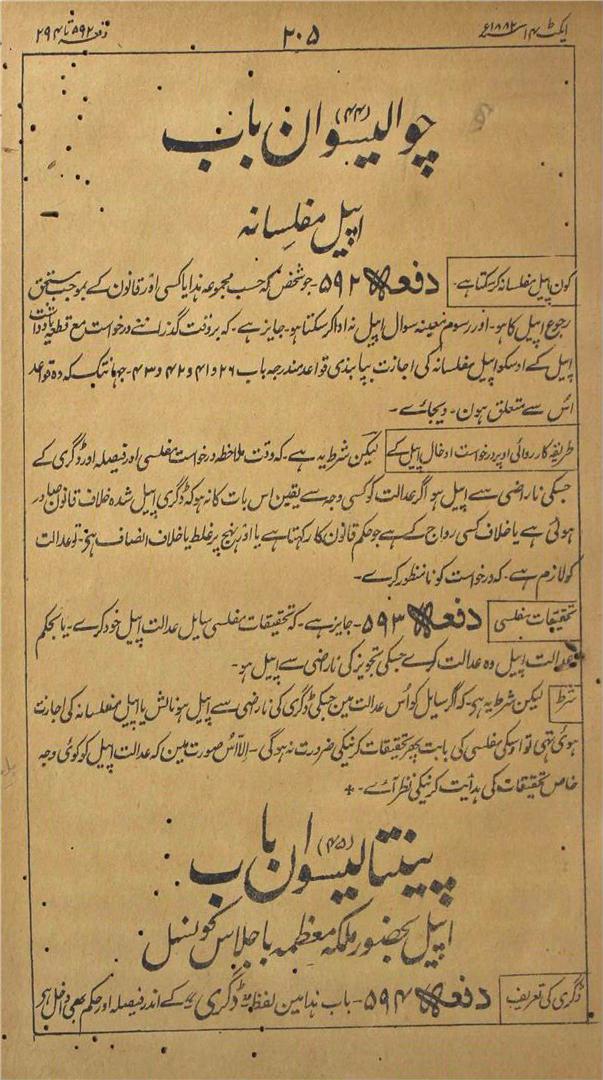 ایکٹ ۱۴ سنہ ۱۸۸۲ء
۲۰۵
دفعہ ۵۹۲ تا ۲۹۴
چوالیسوان باب
(۴۴)
اپیل مفلسانہ
کون اپیل مفلسانہ کرسکتا ہے۔ دفعہ ۵۹۲۔ جو شخص کہ حسب مجموعہ ہذا یا کسی اور قانون کے بموجب مستحق
رجوع اپیل کا ہو۔ اور رسوم معینہ سوال اپیل نہ ادا کرسکتا ہو۔ جایز ہے۔ کہ بروقت گذراننے درخواست مع قطعہ یادداشت
اپیل کے اوسکو اپیل مفلسانہ کی اجازت بپابندی قواعد مندرجہ باب ۲۶ و ۴۱ و ۴۲ و ۴۳۔ جہانتک کہ وہ قواعد
اس سے متعلق ہون۔ دیجائے۔
طریقہ کارروائی اوپر درخواست ادخال اپیل کے لیکن شرط یہ ہے۔ کہ وقت ملاحظہ درخواست مفلسی اور فیصلہ اور ڈگری کے
جسکی ناراضی سے اپیل ہو اگر عدالت کو کسی وجہ سے یقین اس بات کا نہ ہو کہ ڈگری اپیل شدہ خلاف قانون صادر
ہوئی ہے یا خلاف کسی رواج کے ہے جو حکم قانون کا رکہتا ہے یا اور نہج پر غلط یا خلاف انصاف ہے۔ تو عدالت
کو لازم ہے۔ کہ درخواست کو نامنظور کرے۔
تحقیقات مفلسی دفعہ ۵۹۳۔ جایز ہے۔ کہ تحقیقات مفلسی سایل عدالت اپیل خود کرے۔ یا بحکم
عدالت اپیل وہ عدالت کرے جسکی تجویز کی ناراضی سے اپیل ہو۔
شرط لیکن شرط یہ ہے۔ کہ اگر سایل کو اُس عدالت مین جسکی ڈگری کی ناراضی سے اپیل ہو نالش یا اپیل مفلسانہ کی اجازت
ہوئی تہی تو اوسکی مفلسی کی بابت پہر تحقیقات کرنیکی ضرورت نہ ہوگی۔ الا اُس صورت مین کہ عدالت اپیل کو کوئی وجہ
خاص تحقیقات کی ہدایت کرنیکی نظر آئے۔ +
پینتالیسوان باب
(۴۵)
اپیل بحضور ملکہ معظمہ باجلاس کونسل
ڈگری کی تعریف دفعہ ۵۹۴۔ باب ہذا مین لفظ ڈگری کے اندر فیصلہ اور حکم بھی داخل ہے